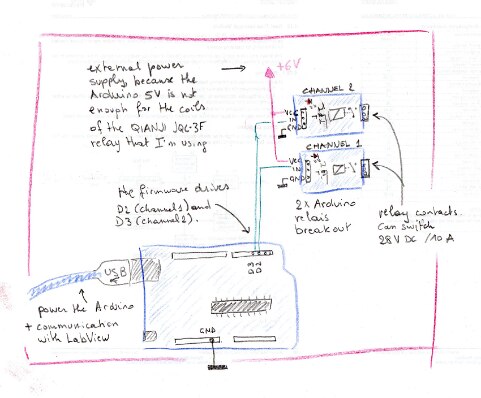 external power
supply, because the
Arduino 5V is not
enough for the coils
of the QIANJI JQC-3F
relay that I'm using
+6V
CHANNEL 2
VCC
IN
GND
CHANNEL 1
VCC
IN
GND
the firmware drives
D2 (channel 1) and
D3 (channel 2).
2x Arduino
relais
breakout
relay contacts.
Can switch
28V DC /10 A
D3
D2
USB
power the Arduino
+ communication
with LabView
GND